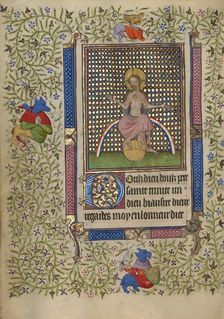 Doulz dieu doulz pere
sainte trinite un
dieu biau sire dieu
regardes moy